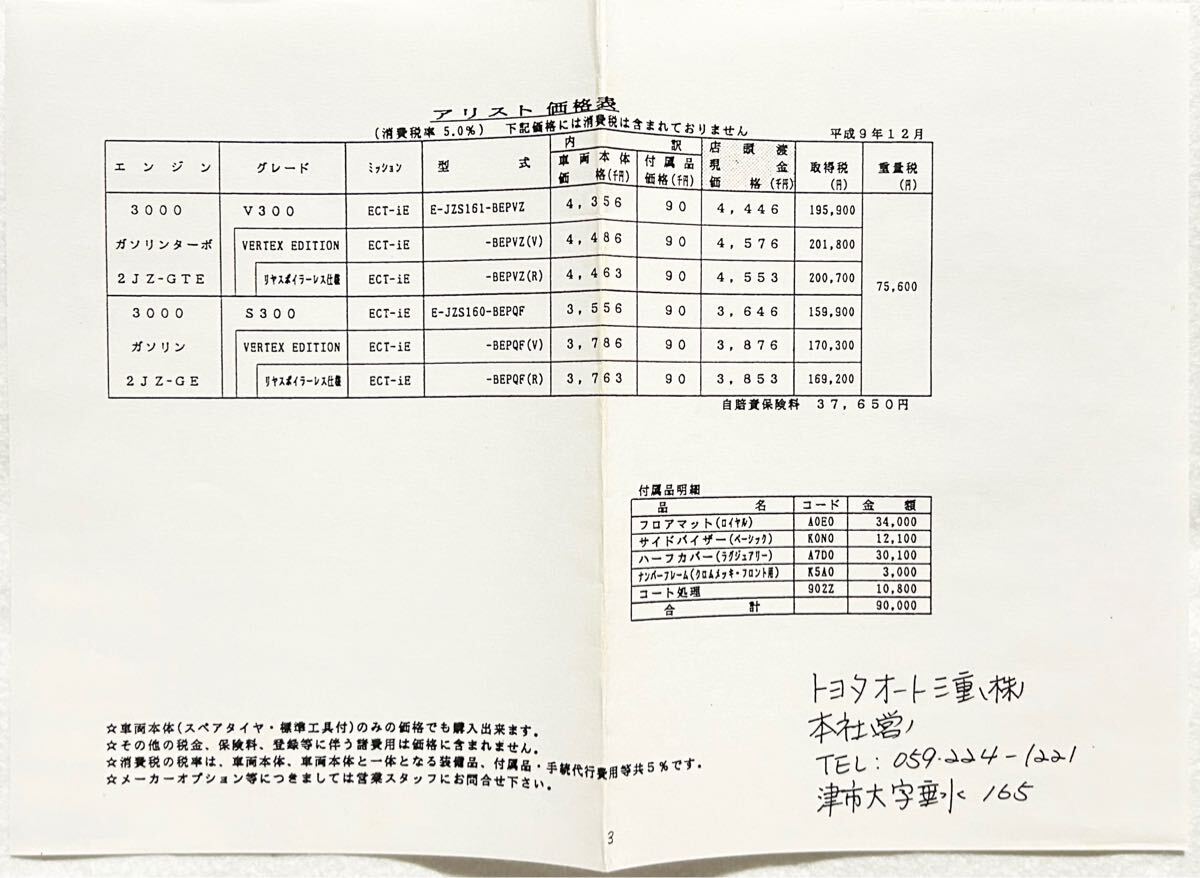 アリスト 価格表
(消費税率 5.0%) 下記価格には消費税は含まれておりません 平成9年12月
エンジン グレード ミッション 型式 内訳 車両本体価格(千円) 付属品価格(千円) 店頭渡現金価格(千円) 取得税(円) 重量税(円)
3000 V300 ECT-iE E-JZS161-BEPVZ 4,356 90 4,446 195,900
ガソリンターボ VERTEX EDITION ECT-iE -BEPVZ(V) 4,486 90 4,576 201,800
2JZ-GTE リヤスポイラーレス仕様 ECT-iE -BEPVZ(R) 4,463 90 4,553 200,700
75,600
3000 S300 ECT-iE E-JZS160-BEPQF 3,556 90 3,646 159,900
ガソリン VERTEX EDITION ECT-iE -BEPQF(V) 3,786 90 3,876 170,300
2JZ-GE リヤスポイラーレス仕様 ECT-iE -BEPQF(R) 3,763 90 3,853 169,200
自賠責保険料 37,650円
付属品明細
品名 コード 金額
フロアマット(ロイヤル) A0E0 34,000
サイドバイザー(ベーシック) K0N0 12,100
ハーフカバー(ラグジュアリー) A7D0 30,100
ナンバーフレーム(クロムメッキ・フロント用) K5A0 3,000
コート処理 902Z 10,800
合計 90,000
☆車両本体(スペアタイヤ・標準工具付)のみの価格でも購入出来ます。
☆その他の税金、保険料、登録等に伴う諸費用は価格に含まれません。
☆消費税の税率は、車両本体、車両本体と一体となる装備品、付属品・手続代行費用等共5%です。
☆メーカーオプション等につきましては営業スタッフにお問合せ下さい。
トヨタオート三重(株)
本社(営)
TEL:059-224-1221
津市大字垂水 165
3